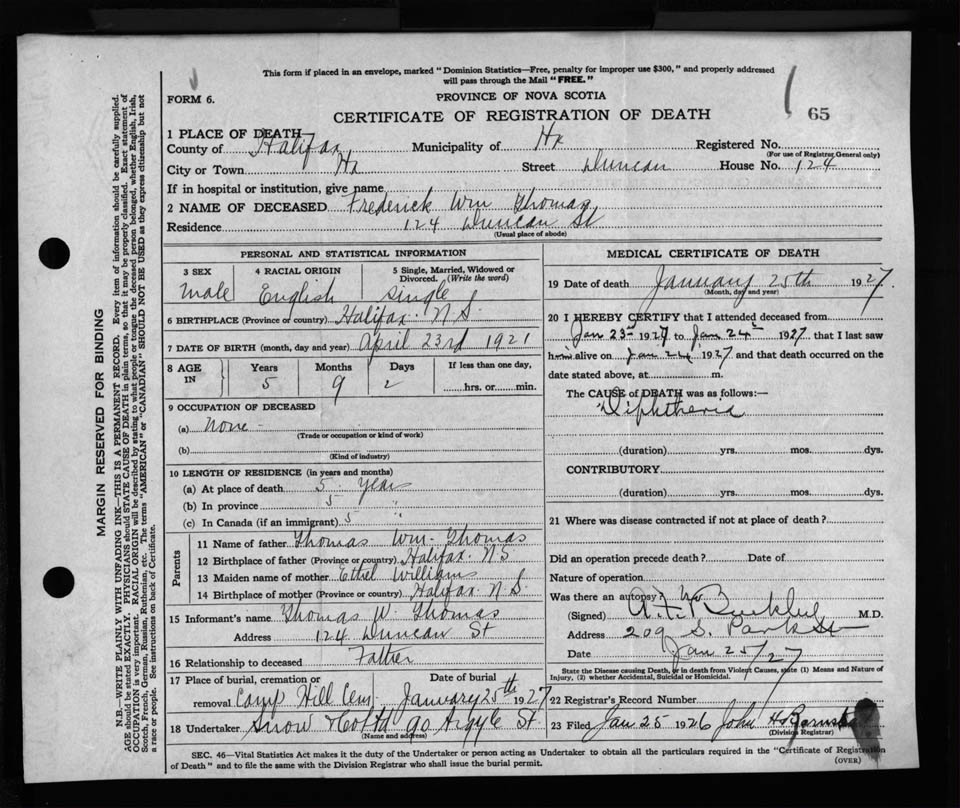 This form if placed in an envelope, marked "Dominion Statistics—Free, penalty for improper use $300," and properly addressed
will pass through the Mail "FREE."
FORM 6.
PROVINCE OF NOVA SCOTIA
CERTIFICATE OF REGISTRATION OF DEATH
65
1 PLACE OF DEATH
County of Halifax Municipality of Hx Registered No.
(For use of Registrar General only)
City or Town Hx Street Duncan House No. 124
If in hospital or institution, give name
2 NAME OF DECEASED Frederick Wm Thomas
Residence 124 Duncan St
(Usual place of abode)
PERSONAL AND STATISTICAL INFORMATION
3 SEX 4 RACIAL ORIGIN 5 Single, Married, Widowed or
Divorced. (Write the word)
male English single
6 BIRTHPLACE (Province or country) Halifax. N S.
7 DATE OF BIRTH (month, day and year) April 23rd 1921
8 AGE IN Years Months Days If less than one day,
5 9 2 hrs. or min.
9 OCCUPATION OF DECEASED
(a) None -
(Trade or occupation or kind of work)
(b)
(Kind of industry)
10 LENGTH OF RESIDENCE (in years and months)
(a) At place of death 5 Years
(b) In province 5
(c) In Canada (if an immigrant) 5 "
Parents
11 Name of father Thomas Wm. Thomas
12 Birthplace of father (Province or country) Halifax. NS
13 Maiden name of mother Ethel Williams
14 Birthplace of mother (Province or country) Halifax. N S
15 Informant's name Thomas W. Thomas
Address 124 Duncan St
16 Relationship to deceased Father
17 Place of burial, cremation or Date of burial
removal Camp Hill Cem January 25th 1927
18 Undertaker Snow & Co Ltd 90 Argyle St
(Name and address)
MEDICAL CERTIFICATE OF DEATH
19 Date of death January 25th 1927.
(Month, day and year)
20 I HEREBY CERTIFY that I attended deceased from
Jan 23rd 1927 to Jan 24th 1927. that I last saw
him alive on Jan 24 1927 and that death occurred on the
date stated above, at m.
The CAUSE of DEATH was as follows:—
Diphtheria
(duration) yrs. mos. dys.
CONTRIBUTORY
(duration) yrs. mos. dys.
21 Where was disease contracted if not at place of death?
Did an operation precede death? Date of
Nature of operation
Was there an autopsy? No
(Signed) Buckley M.D.
Address 209 S. Park St
Date Jan 25/27
State the Disease causing Death, or in death from Violent Causes, state (1) Means and Nature of
Injury, (2) whether Accidental, Suicidal or Homicidal.
22 Registrar's Record Number
23 Filed Jan 25 1926 John H
(Division Registrar)
SEC. 46—Vital Statistics Act makes it the duty of the Undertaker or person acting as Undertaker to obtain all the particulars required in the "Certificate of Registration
of Death" and to file the same with the Division Registrar who shall issue the burial permit.
(OVER)
MARGIN RESERVED FOR BINDING
N.B.—WRITE PLAINLY WITH UNFADING INK—THIS IS A PERMANENT RECORD. Every item of information should be carefully supplied.
AGE should be stated EXACTLY. PHYSICIANS should STATE CAUSE OF DEATH in plain terms, so that it may be properly classified. Exact statement of
OCCUPATION is very important. RACIAL ORIGIN will be described by stating to what people or tongue the deceased person belonged, whether English, Irish,
Scotch, French, German, Russian, Ruthenian, etc. The terms "AMERICAN" or "CANADIAN" SHOULD NOT BE USED as they express citizenship but not
a race or people. See instructions on back of Certificate.